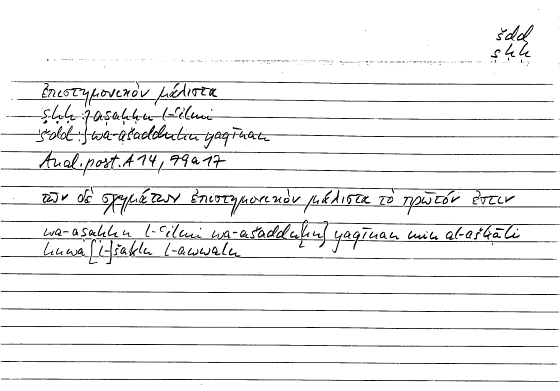 šdd
ṣḥḥ
ἐπιστημονικὸν μάλιστα
ṣḥḥ : } aṣaḥḥu l-ʿilmi
šdd : } wa-ašadduhu yaqīnan
Anal. post. A 14, 79 a 17
τῶν δὲ σχημάτων ἐπιστημονικὸν μάλιστα τὸ πρῶτόν ἐστιν
wa-aṣaḥḥu l-ʿilmi wa-ašaddu[hu] yaqīnan min al-aškāli
huwa [l-]šaklu l-awwalu